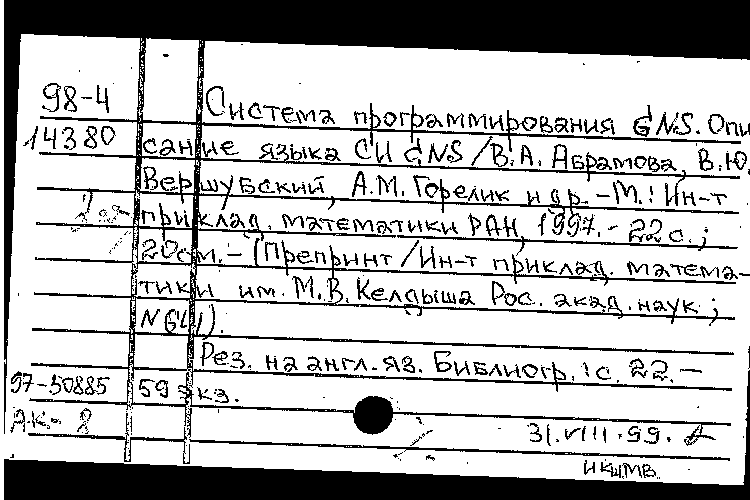 98-4
14380
Система программирования GNS. Опи
сание языка СИ GNS / В.А. Абрамова, В.Ю.
Вершубский, А.М. Горелик и др. – М.: Ин-т
приклад. математики РАН, 1997. – 22 с.;
20 см. – (Препринт / Ин-т приклад. матема-
тики им. М.В. Келдыша Рос. акад. наук;
Рез. на англ. яз. Библиогр.: с. 22. –
97-50885 59 экз.
31.VIII.99.